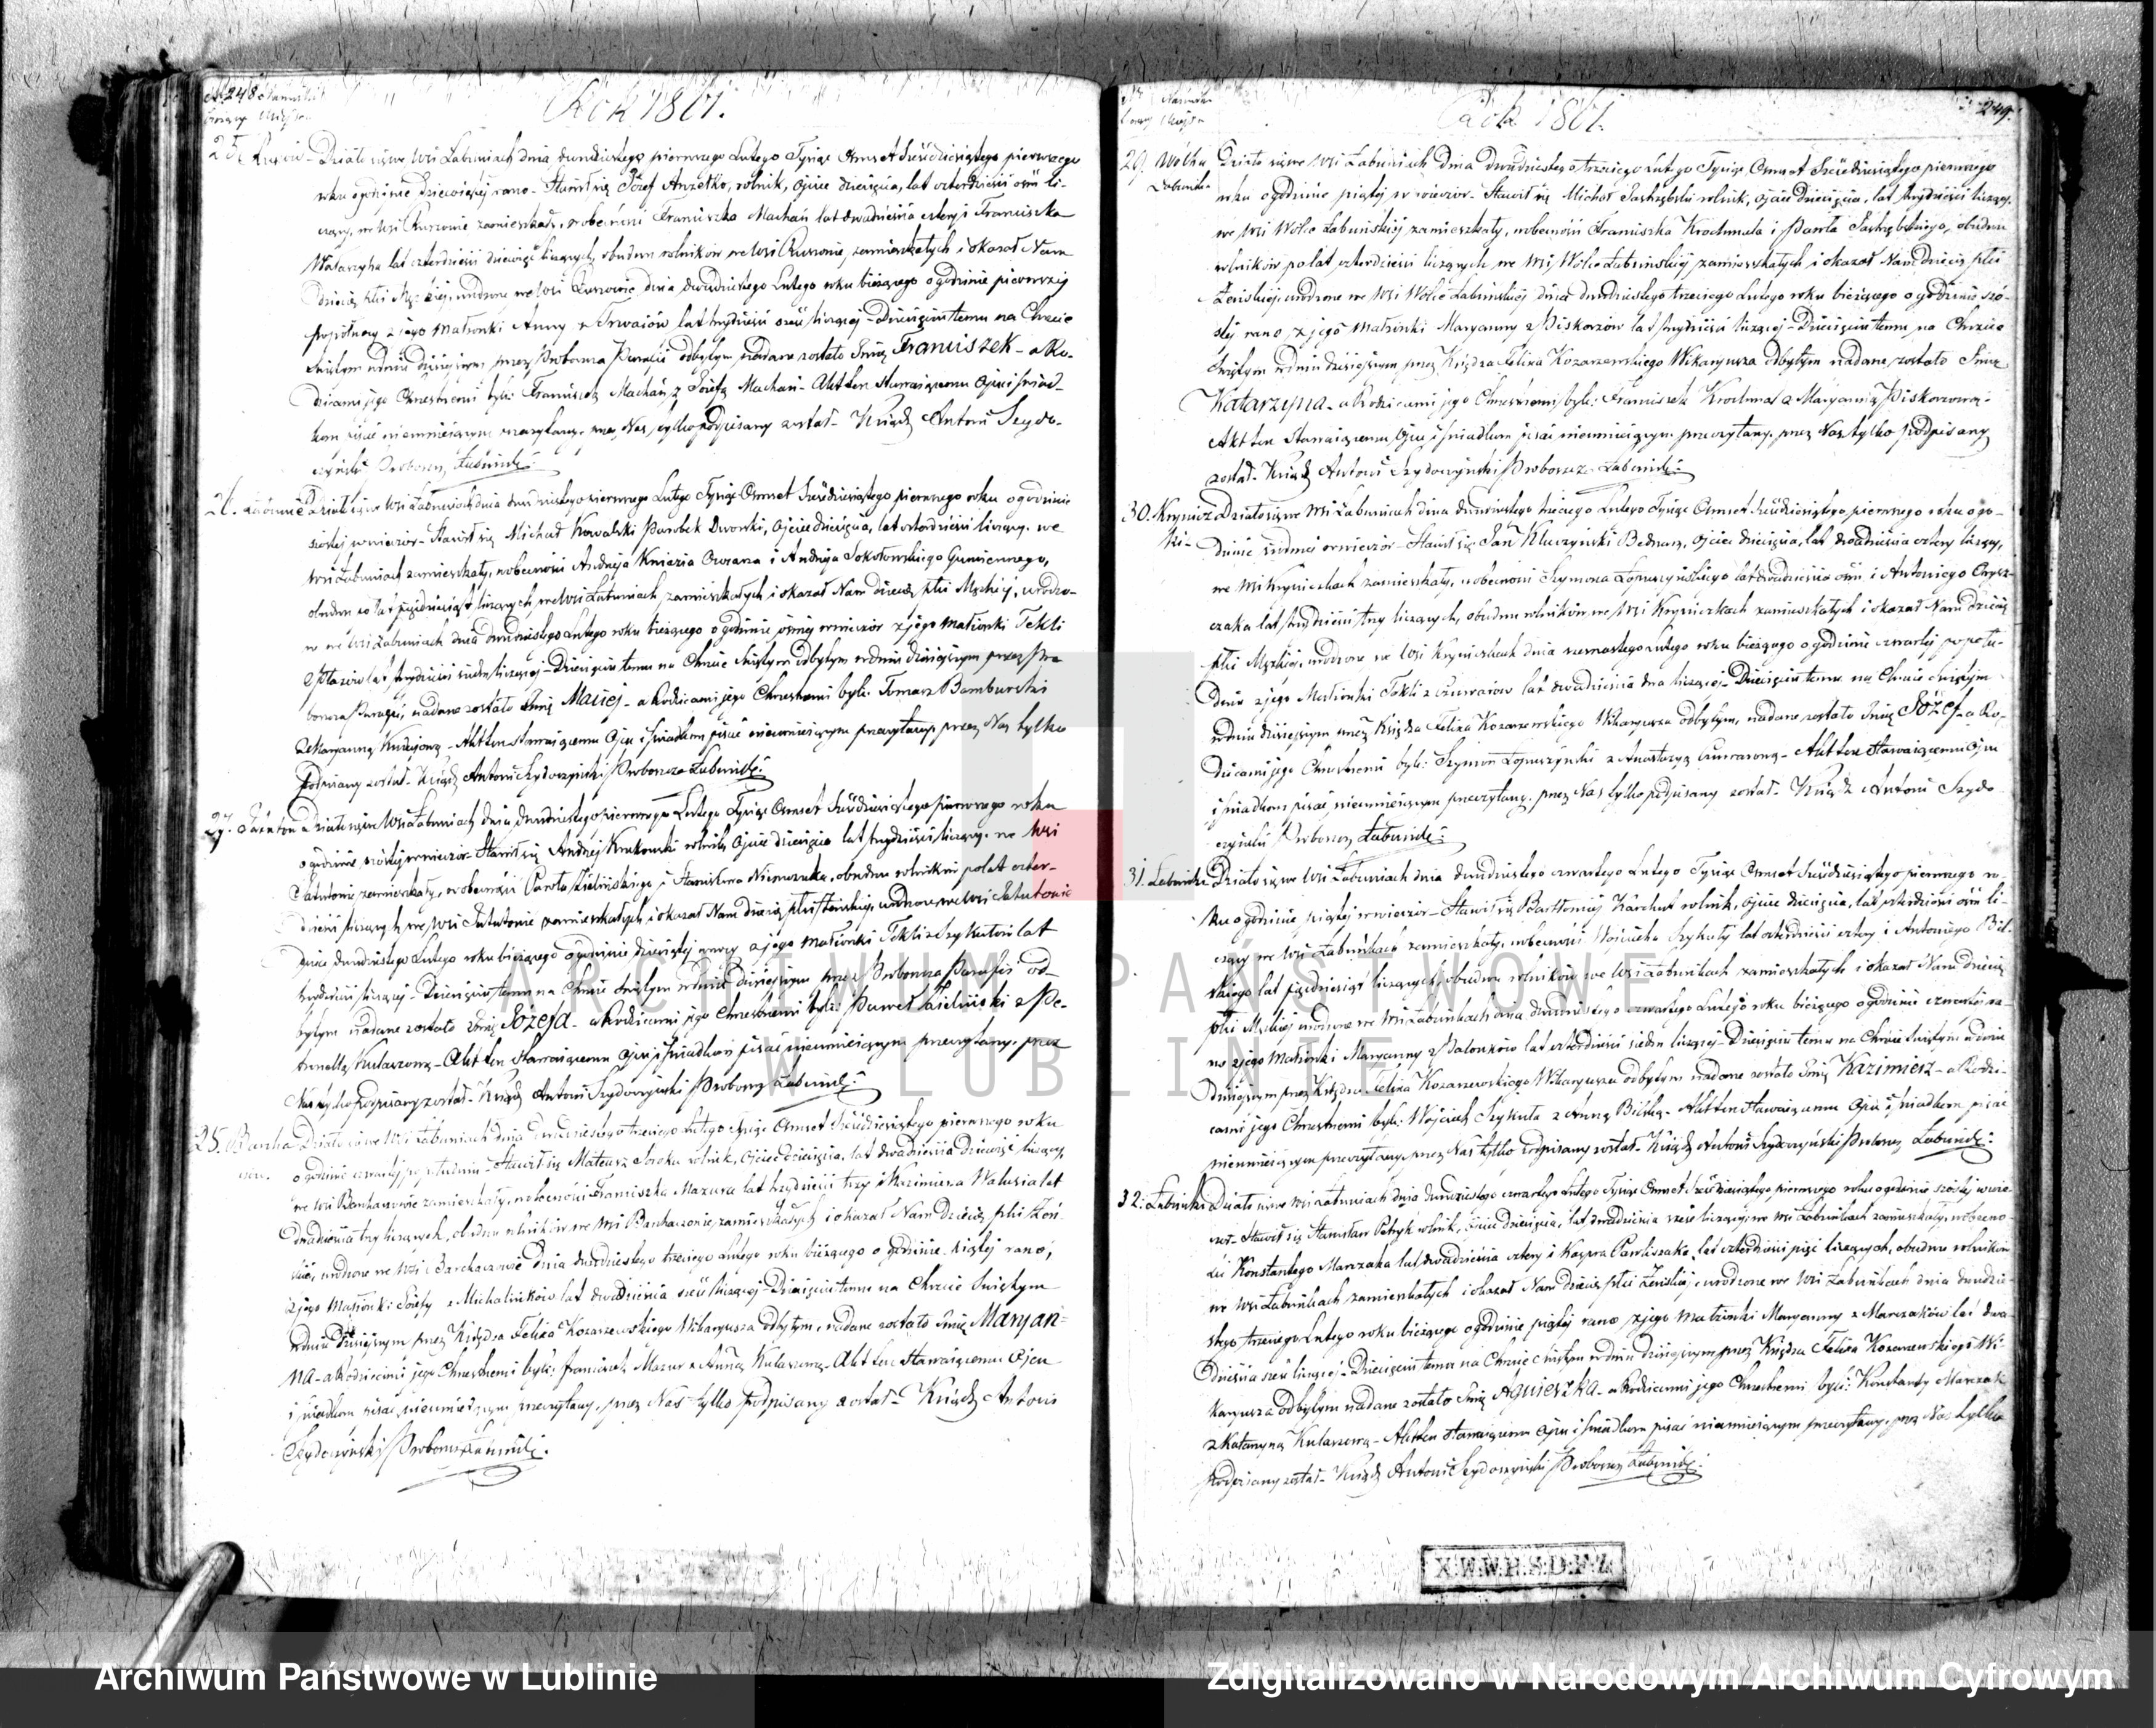 248
Rok 1861.
25. Ruszów - Działo się we Wsi Łabuniach dnia dwudziestego pierwszego Lutego Tysiąc Ośmset Sześćdziesiątego pierwszego
roku o godzinie dziewiątej rano - Stawił się Józef Anzelko, rolnik, Ojciec dziecięcia, lat czterdzieści ośm li-
czący, we Wsi Ruszowie zamieszkały, w obecności Franciszka Machań lat dwadzieścia cztery i Franciszka
lat czterdzieści dziewięć liczących, obudwu rolników we Wsi Ruszowie zamieszkałych i okazał Nam
dziecię płci Męzkiej, urodzone we Wsi Ruszowie dnia dwudziestego Lutego roku bieżącego o godzinie pierwszej
z jego Małżonki Anny lat trzydzieści sześć liczącej - Dziecięciu temu na Chrzcie
Świętym w dniu dzisiejszym przez Proboszcza Parafii odbytym nadane zostało Imię Franciszek - a Ro-
dzicami jego Chrzestnemi byli: Franciszek Machań z Józefą Machań - Akt ten Stawającemu Ojcu i Świad-
kom pisać nieumiejącym przeczytany, przez Nas tylko podpisany został - Ksiądz Antoni Szydo-
czyński Proboszcz Łabuński
26. Łabunie Działo się we Wsi Łabuniach dnia dwudziestego pierwszego Lutego Tysiąc Ośmset Sześćdziesiątego pierwszego roku o godzinie
szóstej wieczór - Stawił się Michał Kowalski Parobek Dworski, Ojciec dziecięcia, lat czterdzieści liczący, we
Wsi Łabuniach zamieszkały, w obecności Andrzeja Kniazia Owczarza i Andrzeja Sokołowskiego Gumiennego,
obudwu po lat pięćdziesiąt liczących we Wsi Łabuniach zamieszkałych i okazał Nam dziecię płci Męzkiej, urodzo-
ne we Wsi Łabuniach dnia dwudziestego Lutego roku bieżącego o godzinie ósmej wieczór z jego Małżonki Tekli
lat trzydzieści siedm liczącej - Dziecięciu temu na Chrzcie Świętym odbytym w dniu dzisiejszym przez Pro-
boszcza Parafii, nadane zostało Imię Maciej - a Rodzicami jego Chrzestnemi byli: Tomasz Bamburski
z Maryanną - Akt ten stawającemu Ojcu i Świadkom pisać nieumiejącym przeczytany, przez Nas tylko
podpisany został - Ksiądz Antoni Szydoczyński Proboszcz Łabuński
27. Działo się we Wsi Łabuniach dnia dwudziestego pierwszego Lutego Tysiąc Ośmset Sześćdziesiątego pierwszego roku
o godzinie szóstej wieczór - Stawił się Andrzej Krukowski rolnik, Ojciec dziecięcia lat trzydzieści liczący, we Wsi
zamieszkały, w obecności Pawła Zielińskiego i Stanisława, obudwu rolników po lat czter-
dzieści liczących, we Wsi zamieszkałych i okazał Nam dziecię płci Żeńskiej, urodzone we Wsi
dnia dwudziestego Lutego roku bieżącego o godzinie dziewiątej z jego Małżonki Tekli z Szykutów lat
liczącej - Dziecięciu temu na Chrzcie Świętym w dniu dzisiejszym przez Proboszcza Parafii od-
bytym nadane zostało Imię Józefa - a Rodzicami jego Chrzestnemi byli: Paweł Zieliński z Pe-
tronellą Kulaszową - Akt ten Stawającemu Ojcu i Świadkom pisać nieumiejącym przeczytany, przez
Nas tylko podpisany został - Ksiądz Antoni Szydoczyński Proboszcz Łabuński
Działo się we Wsi Łabuniach dnia dwudziestego trzeciego Lutego Tysiąc Ośmset Sześćdziesiątego pierwszego roku
o godzinie czwartej po południu - Stawił się Mateusz Soroka rolnik, Ojciec dziecięcia, lat dwadzieścia dziewięć liczący,
we Wsi Barchaczowie zamieszkały, w obecności Franciszka Mazura lat trzydzieści trzy i Kazimierza Walusia lat
dwadzieścia trzy liczących, obudwu rolników we Wsi Barchaczowie zamieszkałych i okazał Nam Dziecię płci Żeń-
skiej, urodzone we Wsi Barchaczowie dnia dwudziestego trzeciego Lutego roku bieżącego o godzinie piątej rano,
z jego Małżonki Józefy z Michalików lat dwadzieścia sześć liczącej - Dziecięciu temu na Chrzcie Świętym
w dniu dzisiejszym przez Księdza Felixa Kozarzewskiego Wikaryusza odbytym, nadane zostało Imię Maryan-
na - a Rodzicami jego Chrzestnemi byli: Franciszek Mazur z Anną Kulaszową - Akt ten Stawającemu Ojcu
i świadkom pisać nieumiejącym przeczytany, przez Nas tylko podpisany został - Ksiądz Antoni
Szydoczyński Proboszcz Łabuński
249.
Rok 1861.
29. Wólka Działo się we Wsi Łabuniach dnia dwudziestego trzeciego Lutego Tysiąc Ośmset Sześćdziesiątego pierwszego
Łabuńska roku o godzinie piątej w wieczór - Stawił się Michał Jastrzębski rolnik, Ojciec Dziecięcia, lat trzydzieści liczący,
we Wsi Wólce Łabuńskiej zamieszkały, w obecności Franciszka Krochmala i Pawła Jastrzębskiego, obudwu
rolników po lat czterdzieści liczących we Wsi Wólce Łabuńskiej zamieszkałych i okazał Nam dziecię płci
Żeńskiej, urodzone we Wsi Wólce Łabuńskiej dnia dwudziestego trzeciego Lutego roku bieżącego o godzinie szó-
stej rano, z jego Małżonki Maryanny z Piskorzów lat trzydzieści liczącej - Dziecięciu temu na Chrzcie
Świętym w dniu dzisiejszym przez Księdza Felixa Kozarzewskiego Wikaryusza odbytym nadane zostało Imię
Katarzyna - a Rodzicami jego Chrzestnemi byli: Franciszek Krochmal z Maryanną Piskorzową -
Akt ten Stawającemu Ojcu i Świadkom pisać nieumiejącym przeczytany, przez Nas tylko podpisany
został - Ksiądz Antoni Szydoczyński Proboszcz Łabuński
30. Krynicz- Działo się we Wsi Łabuniach dnia dwudziestego trzeciego Lutego Tysiąc Ośmset Sześćdziesiątego pierwszego roku o go-
ki - dzinie siódmej w wieczór - Stawił się Jan Kluczyński Bednarz, Ojciec dziecięcia, lat dwadzieścia cztery liczący,
we Wsi Kryniczkach zamieszkały, w obecności Szymona Łopuszyńskiego lat dwadzieścia ośm i Antoniego
lat trzydzieści trzy liczących, obudwu rolników we Wsi Kryniczkach zamieszkałych i okazał Nam dziecię
płci Męzkiej, urodzone we Wsi Kryniczkach dnia Lutego roku bieżącego o godzinie czwartej po połu-
dniu z jego Małżonki Tekli lat dwadzieścia dwa liczącej - Dziecięciu temu na Chrzcie Świętym
w dniu dzisiejszym przez Księdza Felixa Kozarzewskiego Wikaryusza odbytym, nadane zostało Imię Józef - a Ro-
dzicami jego Chrzestnemi byli: Szymon Łopuszyński z Anastazyą - Akt ten Stawającemu Ojcu
i świadkom pisać nieumiejącym przeczytany, przez Nas tylko podpisany został - Ksiądz Antoni Szydo-
czyński Proboszcz Łabuński
31. Łabuńki Działo się we Wsi Łabuniach dnia dwudziestego czwartego Lutego Tysiąc Ośmset Sześćdziesiątego pierwszego ro-
ku o godzinie piątej w wieczór - Stawił się Bartłomiej Karchut rolnik, Ojciec dziecięcia, lat czterdzieści ośm li-
czący we Wsi Łabuńkach zamieszkały, w obecności Wojciecha Szykuły lat czterdzieści cztery i Antoniego Bil-
skiego lat pięćdziesiąt liczących, obudwu rolników we Wsi Łabuńkach zamieszkałych i okazał Nam dziecię
płci Męzkiej urodzone we Wsi Łabuńkach dnia dwudziestego czwartego Lutego roku bieżącego o godzinie czwartej ra-
no z jego Małżonki Maryanny z Bałonków lat czterdzieści siedm liczącej - Dziecięciu temu na Chrzcie Świętym w dniu
dzisiejszym przez Księdza Felixa Kozarzewskiego Wikaryusza odbytym nadane zostało Imię Kazimierz - a Rodzi-
cami jego Chrzestnemi byli: Wojciech Szykuła z Anną Bilską - Akt ten Stawającemu Ojcu i świadkom pisać
nieumiejącym przeczytany, przez Nas tylko podpisany został - Ksiądz Antoni Szydoczyński Proboszcz Łabuński
32. Łabuńki Działo się we Wsi Łabuniach dnia dwudziestego czwartego Lutego Tysiąc Ośmset Sześćdziesiątego pierwszego roku o godzinie szóstej wie-
czór - Stawił się Stanisław Petryk rolnik, Ojciec dziecięcia, lat dwadzieścia sześć liczący, we Wsi Łabuńkach zamieszkały, w obecno-
ści Konstantego Marczaka lat dwadzieścia cztery i Kaspra Pawliszaka, lat czterdzieści pięć liczących, obudwu rolników
we Wsi Łabuńkach zamieszkałych i okazał Nam dziecię płci Żeńskiej, urodzone we Wsi Łabuńkach dnia dwudzie-
stego trzeciego Lutego roku bieżącego o godzinie piątej rano z jego Małżonki Maryanny z Marczaków lat dwa-
dzieścia sześć liczącej - Dziecięciu temu na Chrzcie Świętym w dniu dzisiejszym przez Księdza Felixa Kozarzewskiego Wi-
karyusza odbytym nadane zostało Imię Agnieszka - a Rodzicami jego Chrzestnemi byli: Konstanty Marczak
z Katarzyną Kulaszową - Akt ten Stawającemu Ojcu i Świadkom pisać nieumiejącym przeczytany, przez Nas tylko
podpisany został - Ksiądz Antoni Szydoczyński Proboszcz Łabuński
X.W.W.H.S.D.P.Z.
ARCHIWUM PAŃSTWOWE
W LUBLINIE
Archiwum Państwowe w Lublinie
Zdigitalizowano w Narodowym Archiwum Cyfrowym